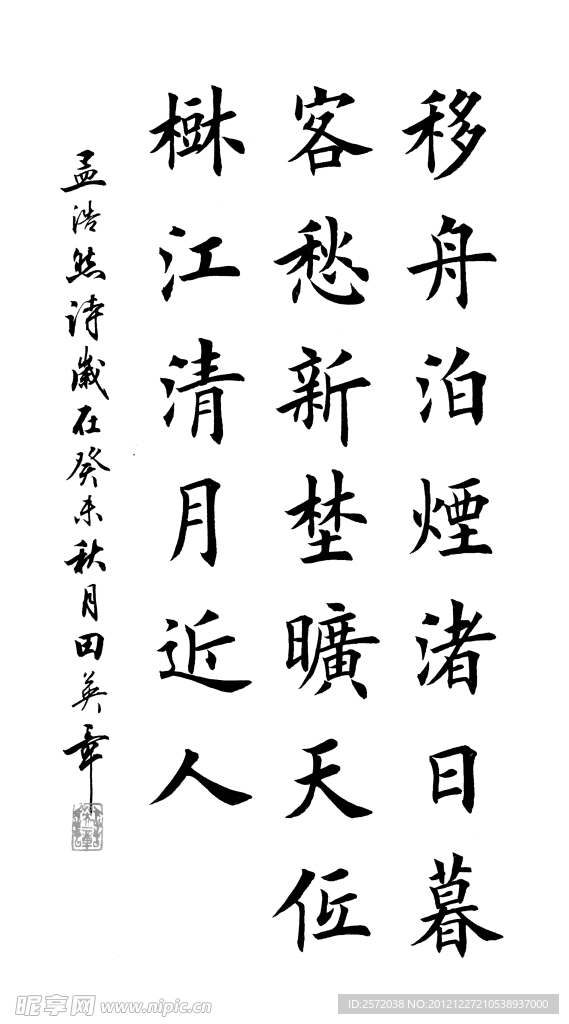 移舟泊煙渚日暮
客愁新埜曠天低
樹江清月近人
孟浩然诗歲在癸未秋月田英章
昵享网 www.nipic.cn
ID:2572038 NO:20121227210538937000